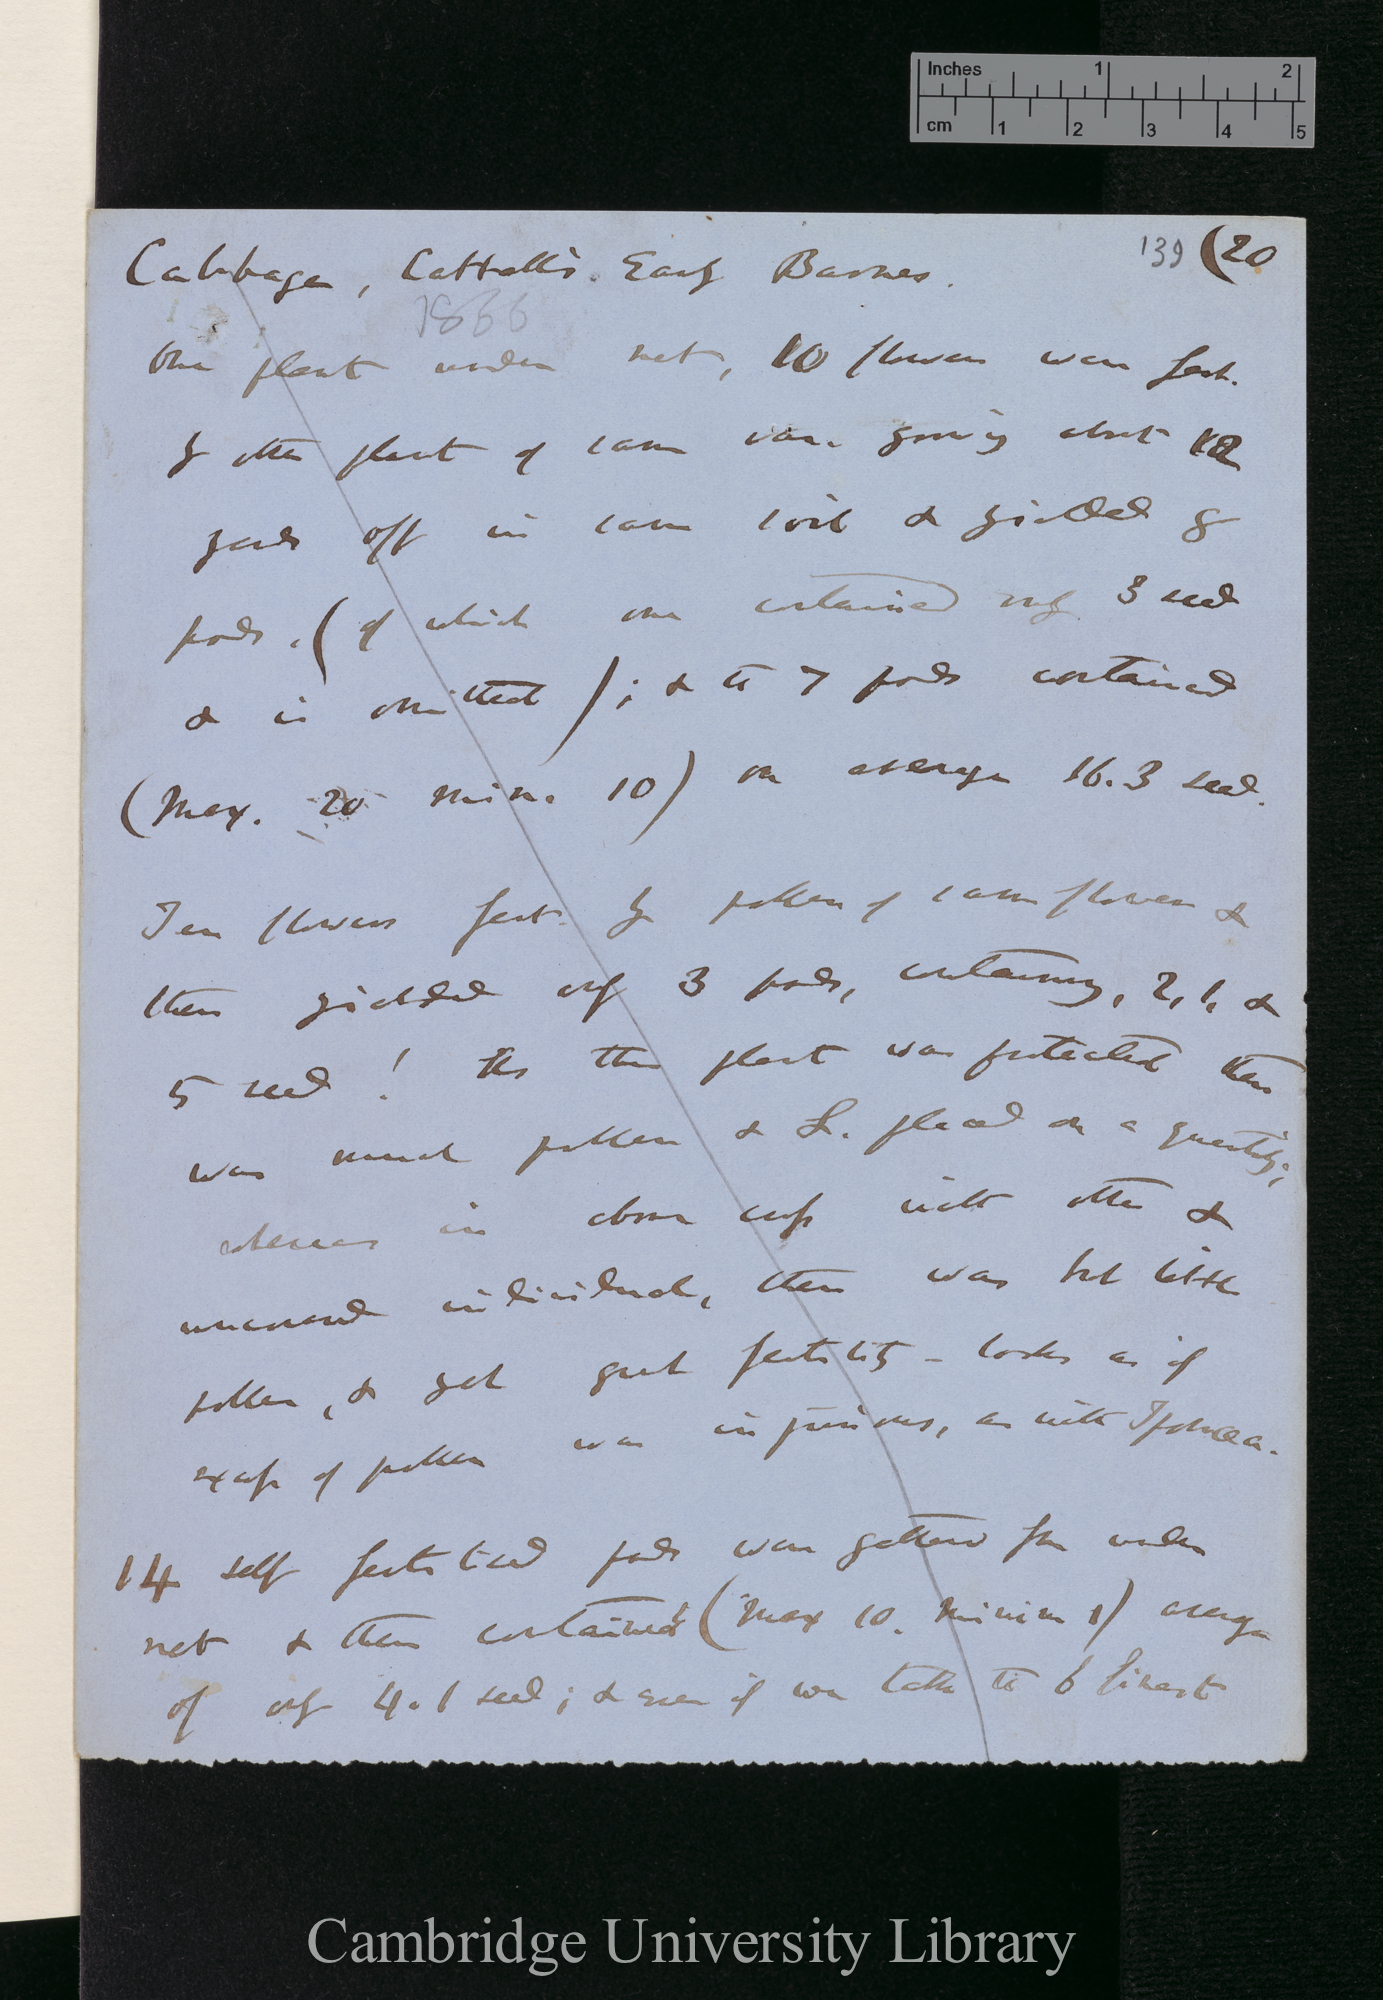 Inches 1 2
cm 1 2 3 4 5
139 (20
Cabbage, Cattell's Early Barnes.
1866
One plant under net, 10 flowers were fert.
by other plant of same var. growing about 12
yards off in same soil & yielded 8
pods, (of which one contained only 3 seed
& is omitted); & the 7 pods contained
(Max. 20 Min. 10) on average 16.3 seed.
Ten flowers fert. by pollen of same flower &
these yielded only 3 pods, containing, 2, 1, &
5 seed! Tho this plant was protected there
was much pollen & I placed on a quantity;
whereas in above cross with other &
uncovered individual, there was but little
pollen, & yet great fertility – looks as if
excess of pollen was injurious, as with Ipomœa.
14 self fertilised pods were gathered from under
net & these contained (Max 10. Minim 1) average
of only 4.1 seed; & even if we take the 6 finest
Cambridge University Library